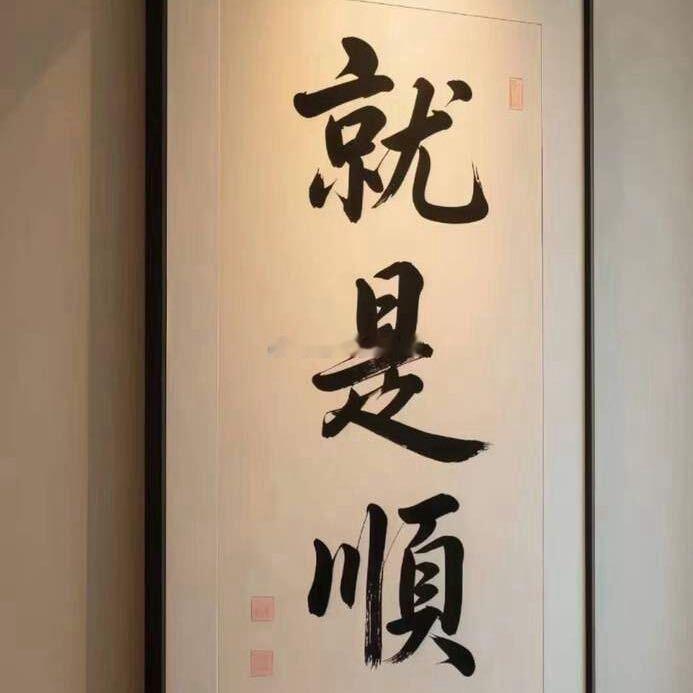 就
是
順